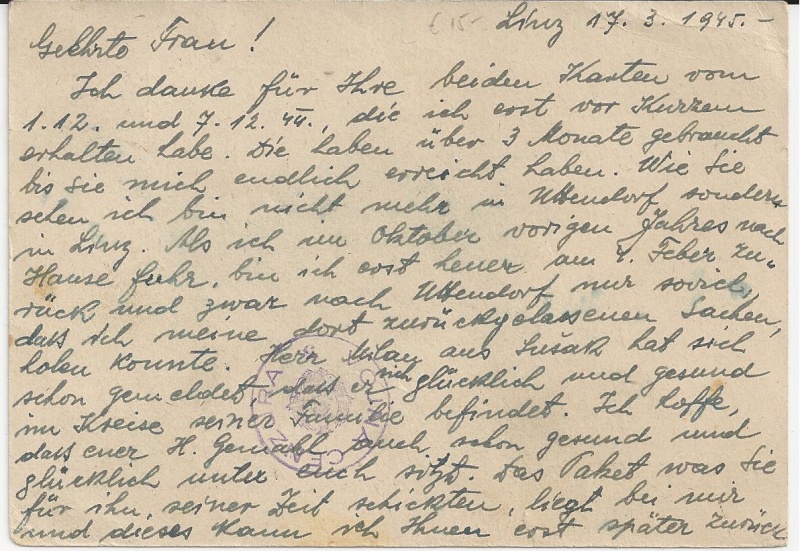 € 15-
Linz 17. 3. 1945.-
Geehrte Frau!
Ich danke für Ihre beiden Karten vom
1.12. und 7.12. 44., die ich erst vor Kurzem
erhalten habe. Die haben über 3 Monate gebraucht
bis Sie mich endlich erreicht haben. Wie Sie
sehen ich bin nicht mehr in Uttendorf sondern
in Linz. Als ich im Oktober vorigen Jahres nach
Hause fuhr, bin ich erst heuer am 1. Feber zu-
rück und zwar nach Uttendorf nur soviel,
dass ich meine dort zurückgelassenen Sachen,
holen konnte. Herr Milan aus Sušak hat sich
schon gemeldet dass er sich glücklich und gesund
im Kreise seiner Familie befindet. Ich hoffe,
dass euer H. Gemahl auch schon gesund und
glücklich unter euch sitzt. Das Paket was Sie
für ihn, seiner Zeit schickten, liegt bei mir
und dieses kann ich Ihnen erst später zurück